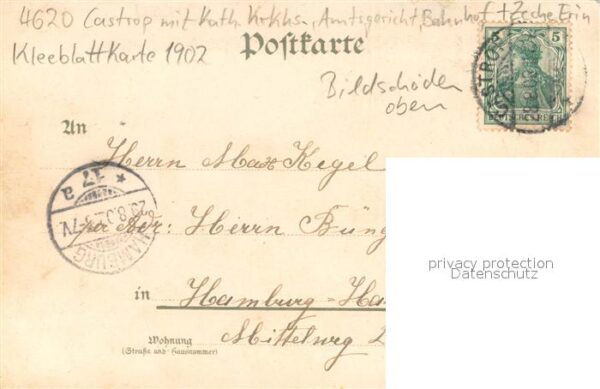 4620 Castrop mit Kath. Krkhs., Amtsgericht, Bahnhof + Zeche Erin
Kleeblattkarte 1902
Postkarte
Bildschäden
oben
5
DEUTSCHES REICH
CASTROP
An
Herrn Max Kegel
per Adr: Herrn Büng
in Hamburg-Ha
Wohnung
(Straße und Hausnummer)
Mittelweg 2
HAMBURG
privacy protection
Datenschutz